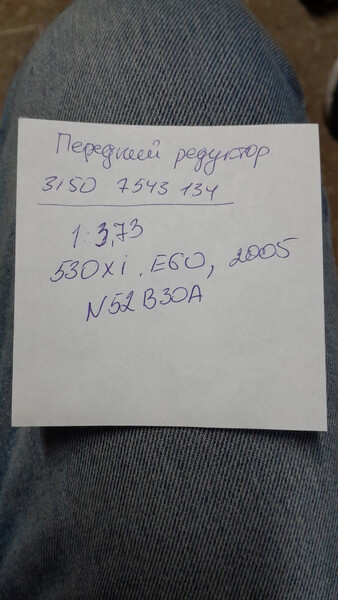 Передний редуктор
3150 7543 134
1:3,73
530xi. E60, 2005
N52B30A